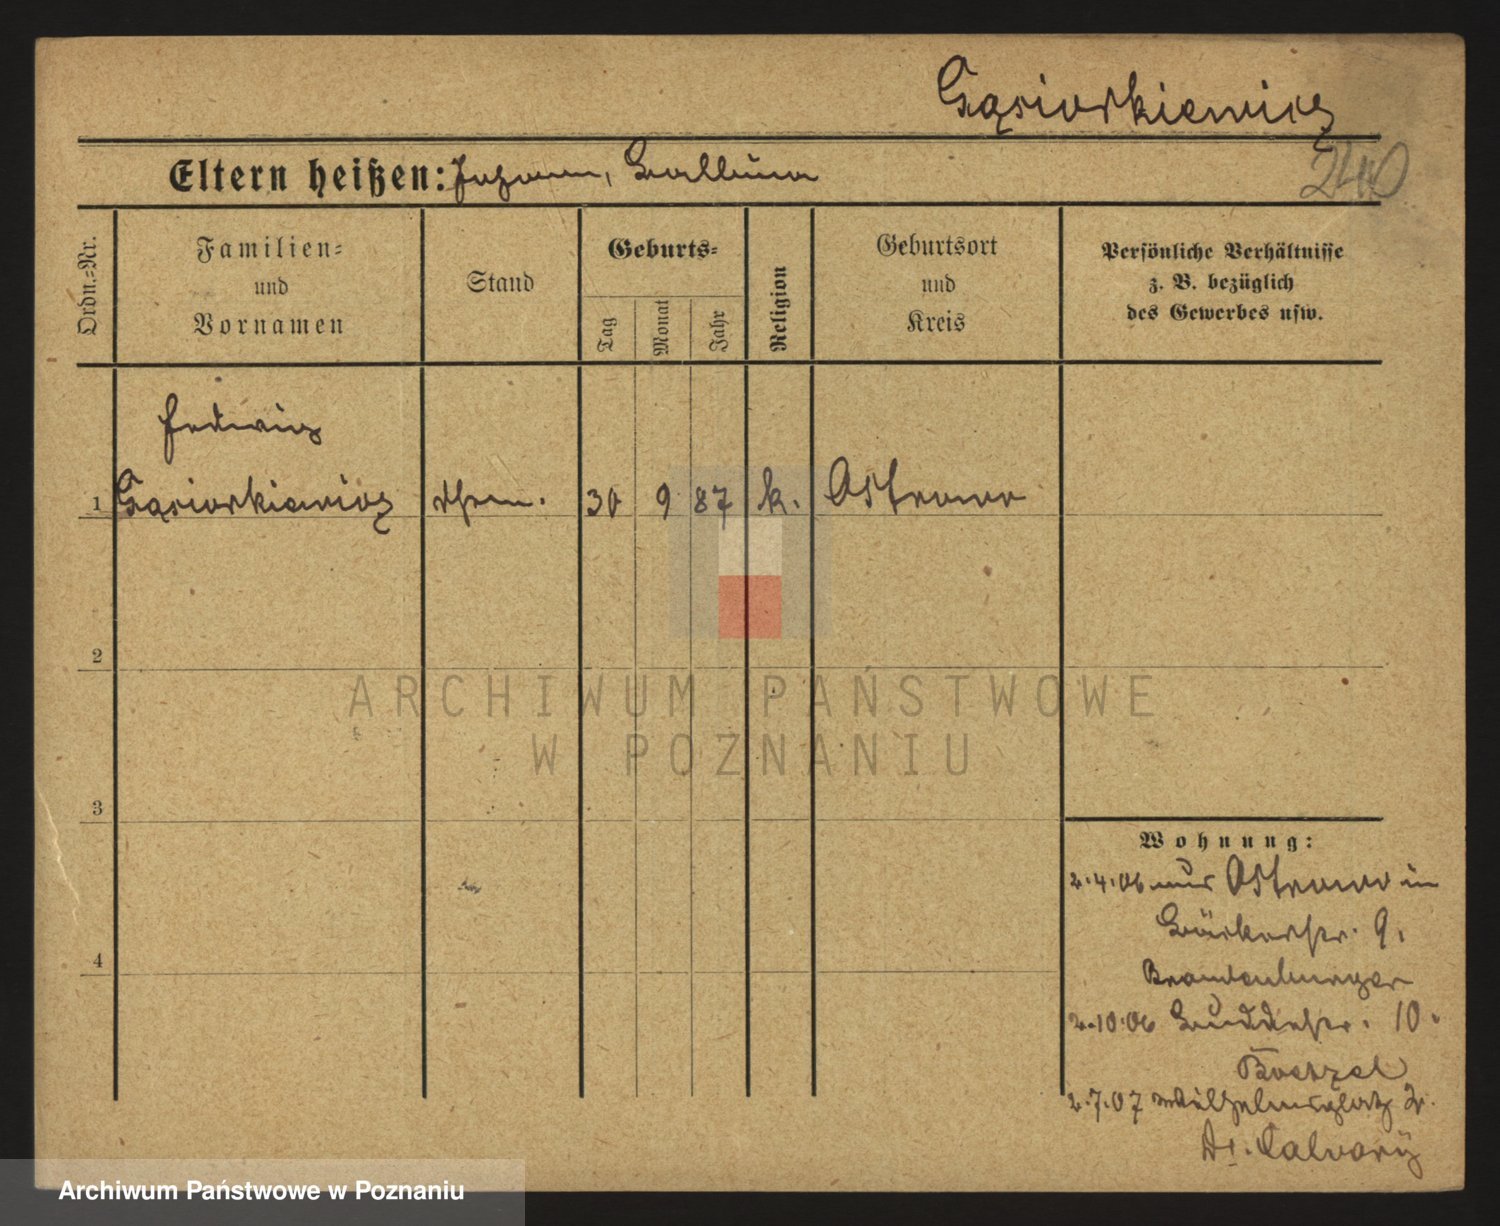 Gąsiorkiewicz
240
Eltern heißen: Johann, Ballbina
Ordn.-Nr.
Familien-
und
Vornamen
Stand
Geburts-
Tag
Monat
Jahr
Religion
Geburtsort
und
Kreis
Persönliche Verhältnisse
z. B. bezüglich
des Gewerbes usw.
Hedwig
1 Gąsiorkiewicz 30 9 87 k. Ostrowo
2
ARCHIWUM PAŃSTWOWE
W POZNANIU
3
4
Wohnung:
2.4.06 aus Ostrowo in
Bäckerstr. 9.
Brandenburger
2.10.06 Buddestr. 10.
Boetzel
2.7.07 Wilhelmsplatz 2.
Dr. Calvary
Archiwum Państwowe w Poznaniu